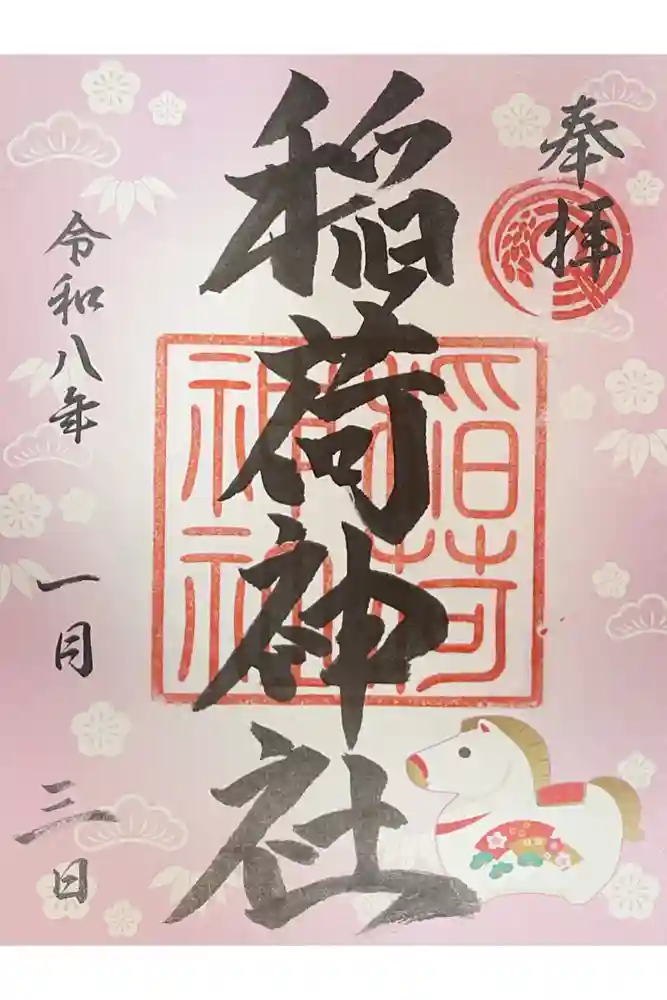 奉拝
稲荷神社
稲荷神社
令和八年
一月
三日